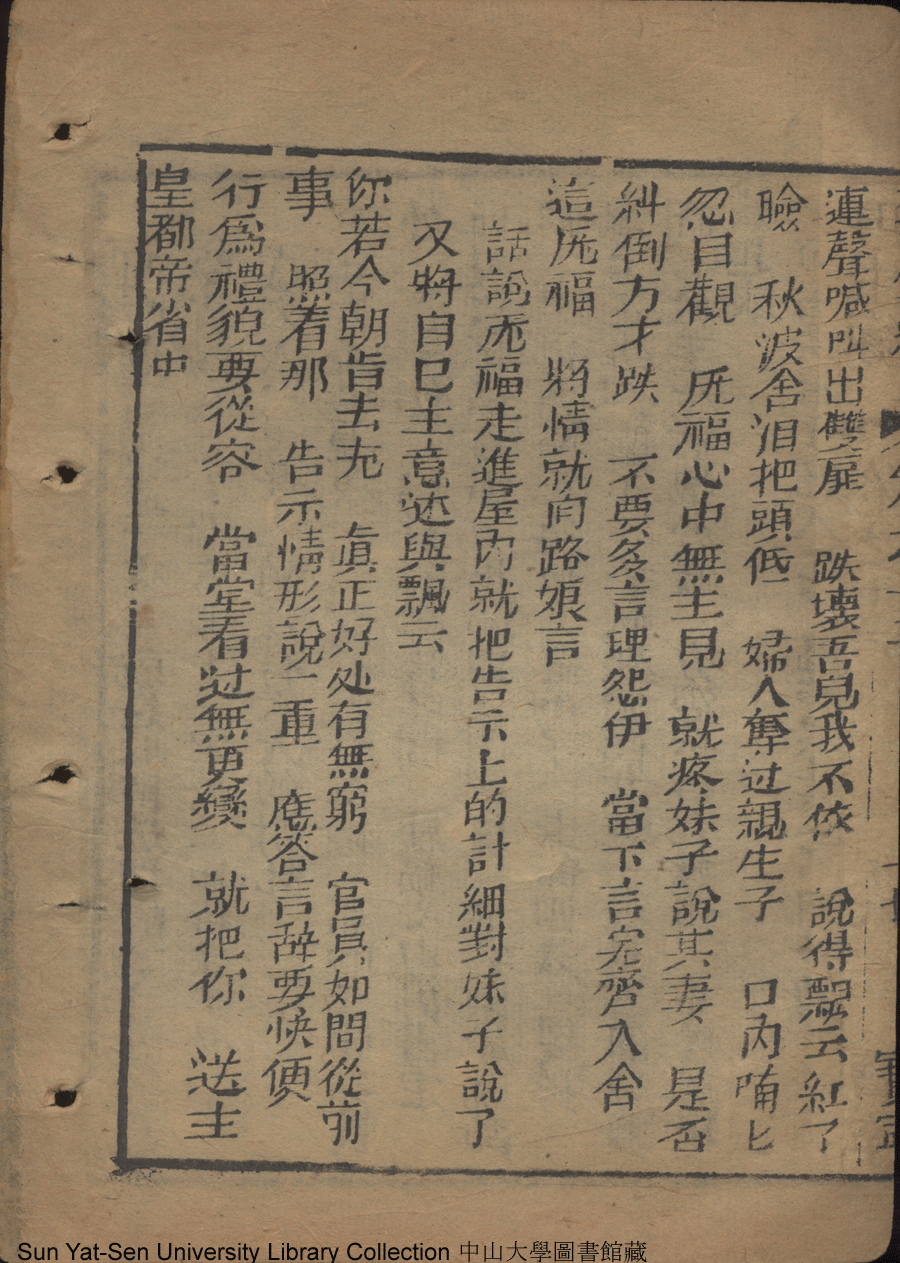 連聲喊叫出雙扉　跌壞吾兒我不依　說得飄云紅了
瞼　秋波舍泪把頭低　婦人奪过親生子　口內喃匕
忽目觀　厎福心中無主見　就疼妹子說其妻　是否
糾倒方才跌　不要多言理怨伊　當下言完齊入舍
這厎福　將情就向路娘言
話說厎福走進屋內就把告示上的計細對妹子說了
又將自巳主意述與飄云
你若今朝肯去充　眞正好处有無窮　官員如間從前
事　照着那　告示情形說一重　應答言辞要快便
行爲禮貌要從容　當堂看过無更變　就把你　送主
皇都帝省中
Sun Yat-Sen University Library Collection 中山大學圖書館藏